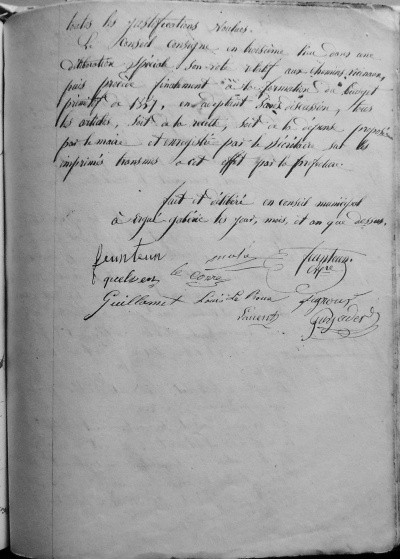 toutes les justifications voulues.
Le Conseil consigne en troisième lieu dans une
délibération spéciale son vote relatif aux chemins vicinaux,
puis procède finalement à la formation du budget
primitif de 1847, en acceptant sans discussion, tous
les articles, soit à la recette, soit à la dépense proposés
par le maire et enregistrés par le secrétaire sur les
imprimés transmis à cet effet par la préfecture.
fait et délibéré en conseil municipal
à Ergué gabéric les jour, mois, et an que dessus.
le Corre
Guillamet Louis Le
Laurent